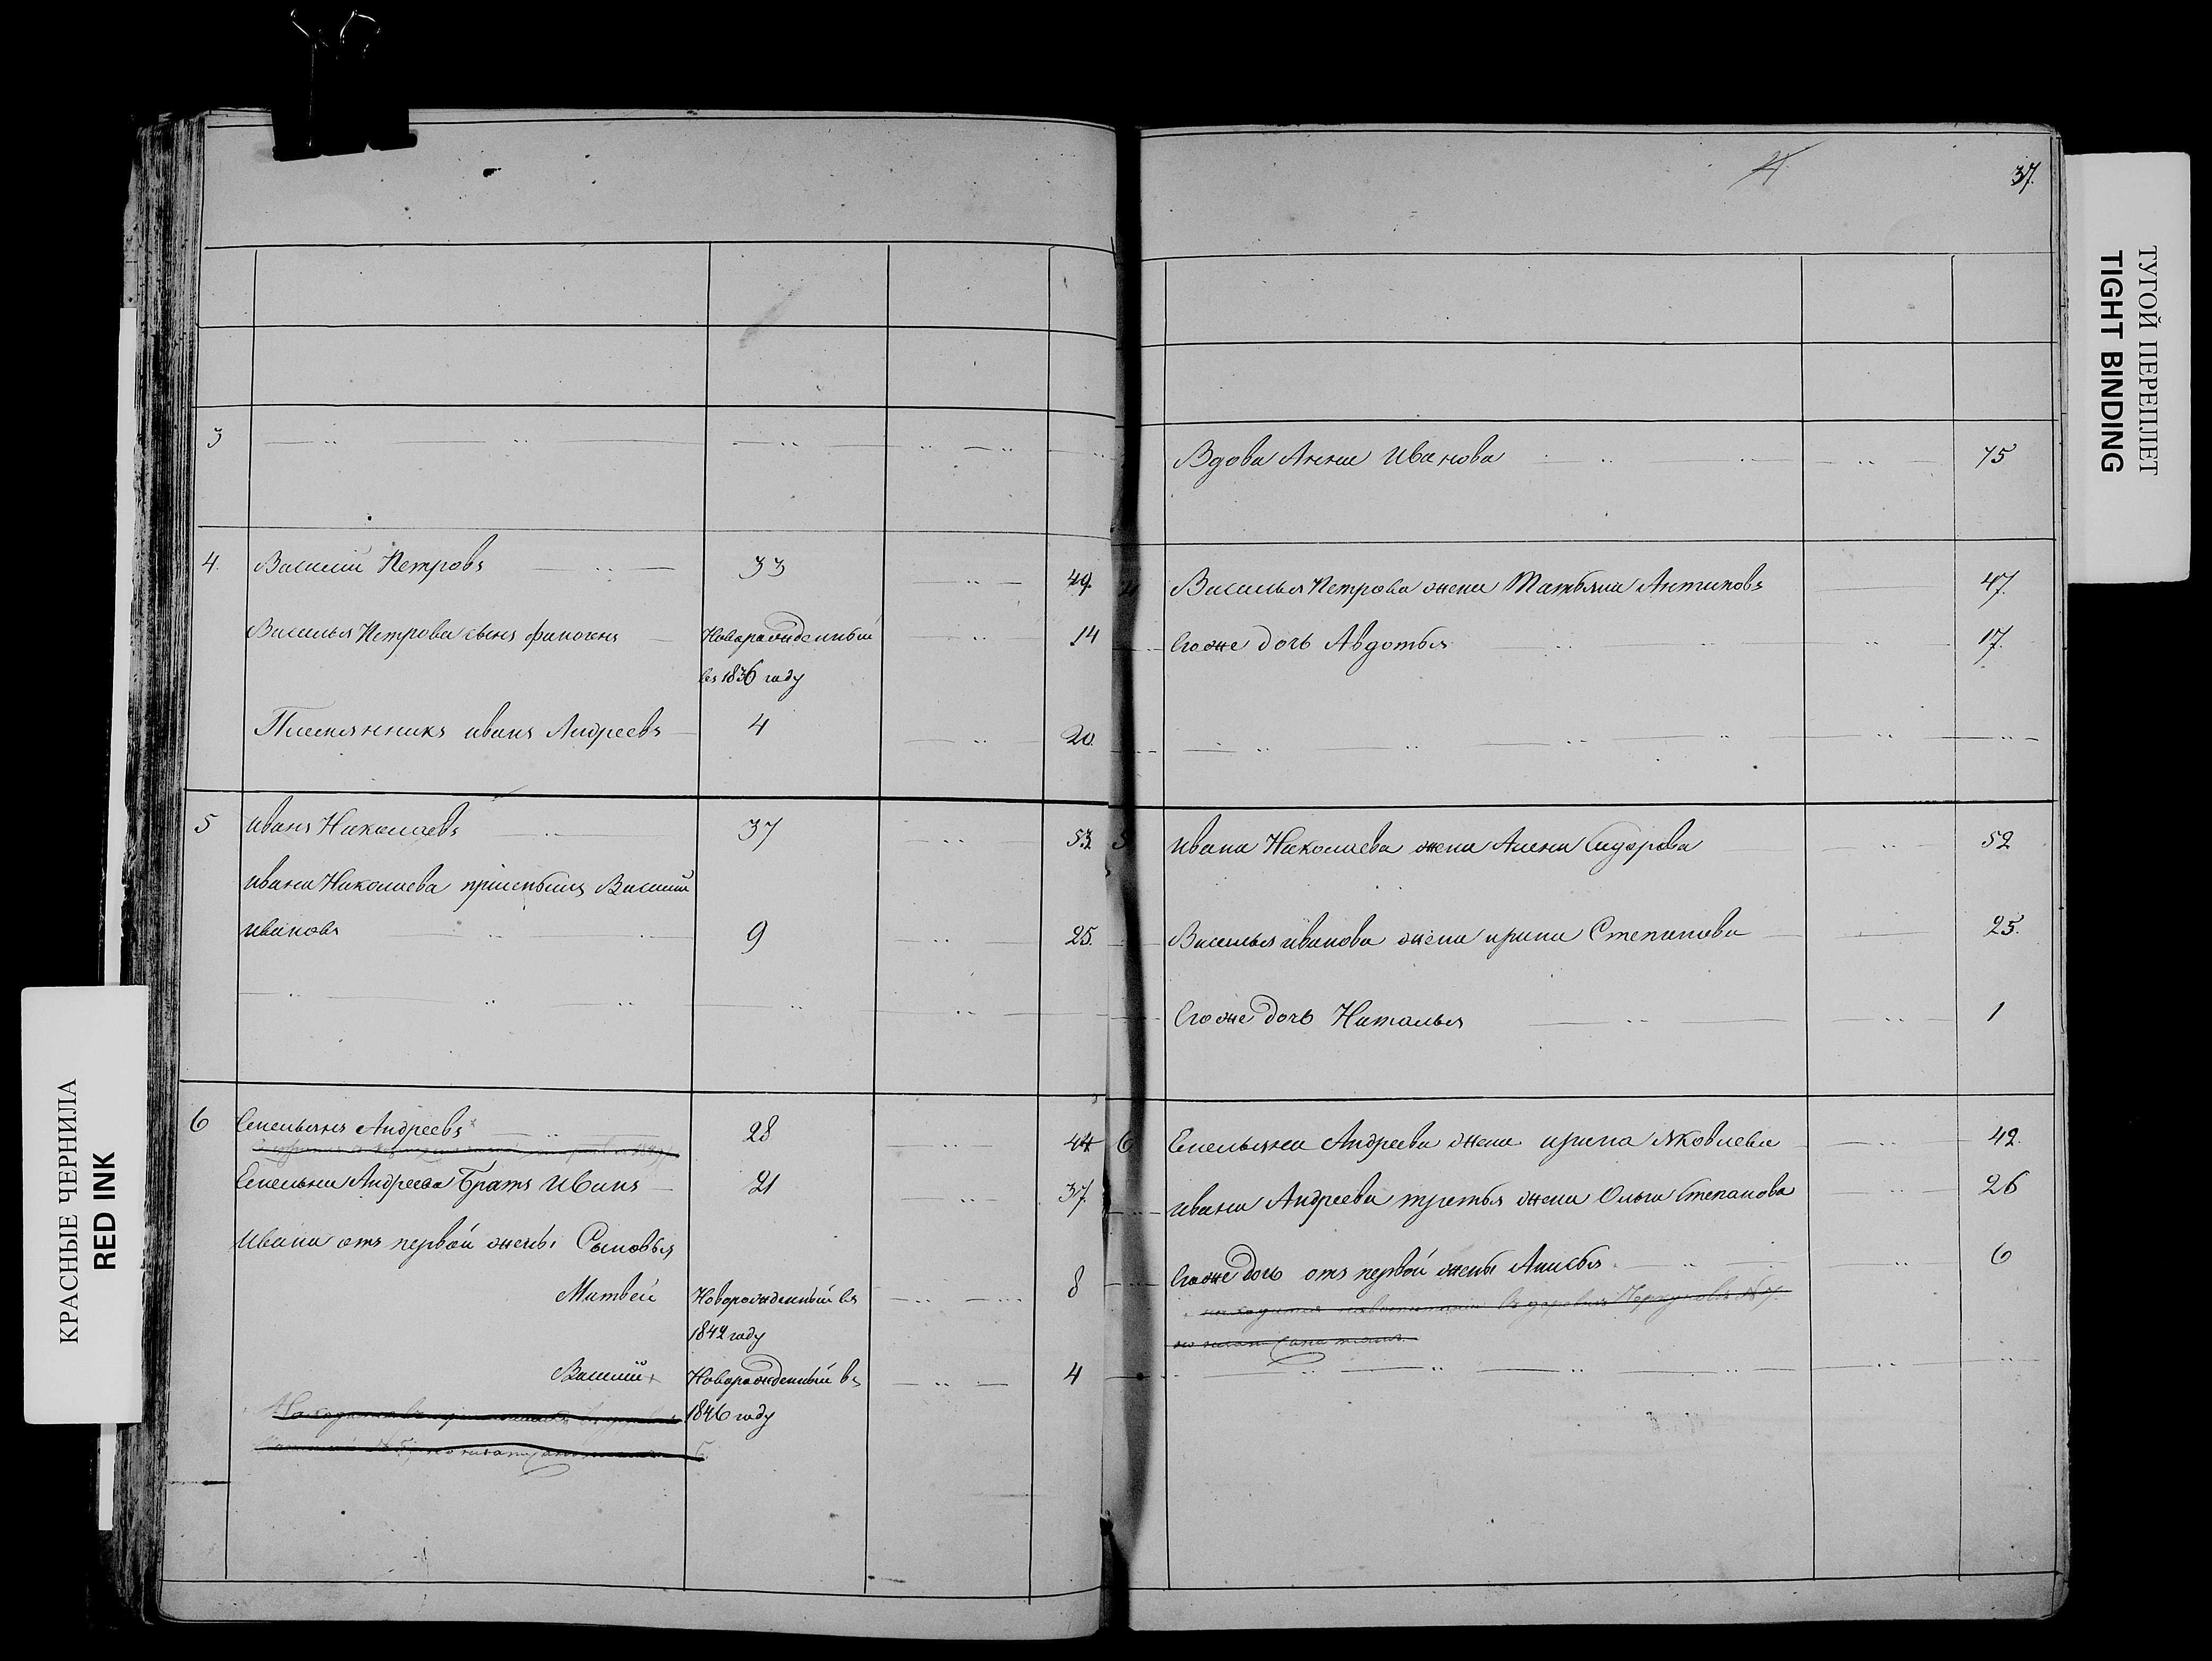 37.
3
4. Василий Петровъ 33 49.
Василья Петрова сынъ финогенъ Новорожденный 14
въ 1836 году
Племянникъ иванъ Андреевъ 4 20.
5 иванъ Николаевъ 37 53.
ивана Николаева приемышъ Василий
ивановъ 9 25.
6 Емельянъ Андреевъ 28 44
Емельяна Андреева Братъ Иванъ 21 37.
Ивана отъ первой жены Сыновья
Матвей Новорожденный въ 8
1842 году
Василий Новорожденный въ 4
1846 году
Вдова Анна Иванова 75
4 Василья Петрова жена Татьяна Антиповъ 47.
Его же дочь Авдотья 17.
5 ивана Николаева жена Алена Сидорова 52
Василья иванова жена ирина Степанова 25.
Его же дочь Наталья 1
6 Емельяна Андреева жена ирина Яковлева 42.
ивана Андреева третья жена Ольга Степанова 26
Его же дочь отъ первой жены Анисья 6
находится въ деревни
ТУГОЙ ПЕРЕПЛЕТ
TIGHT BINDING
КРАСНЫЕ ЧЕРНИЛА
RED INK